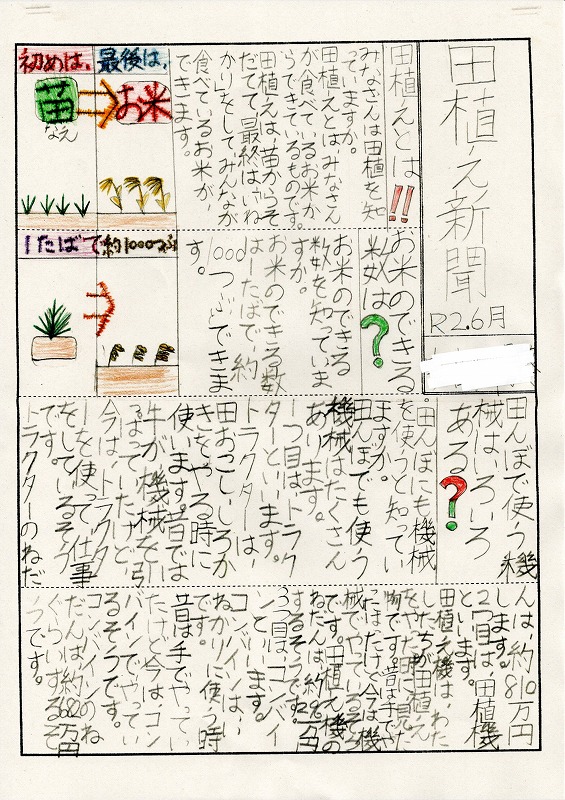 田植え新聞
R2.6月
田植えとは!!
みなさんは田植を知
っていますか。
田植えとは、みなさん
が食べているお米か
らできているものです。
田植えは、苗からそ
だてて、最終は、いね
かりをして、みんなが
食べているお米が、
できます。
初めは、
苗
なえ
最後は、
お米
お米のできる
数は?
お米のできる
数を知っていま
すか。
お米のできる数
は一たばで、約
1000つぶできま
す。
1たばで
約1000つぶ
田んぼで使う機
械はいろいろ
ある?
田んぼにも機械
を使うと知ってい
ますか。
田んぼでも使う
機械はたくさん
あります。
一つ目はトラク
ターといいます。
トラクターは
田おこし、しろか
きをやる時に
使います。昔では
牛が機械を引
っぱっていたけど、
今は、トラクタ
ーを使って仕事
をしているそう
です。
トラクターのねだ
んは、約810万円
します。
2つ目は、田植機
といいます。
田植え機は、わた
したちが田植え
をやった時に見た
物です。昔は手でや
ったけど今は機
械でやっているそう
です。田植え機の
ねだんは約
万円
するそうです。
3つ目は、コンバイ
ンといいます。
コンバインは、い
ねかりに使う時
です。
昔は手でやってい
たけど今は、コン
バインでやってい
るそうです。
コンバインのね
だんは約682万円
ぐらいするそ
うです。